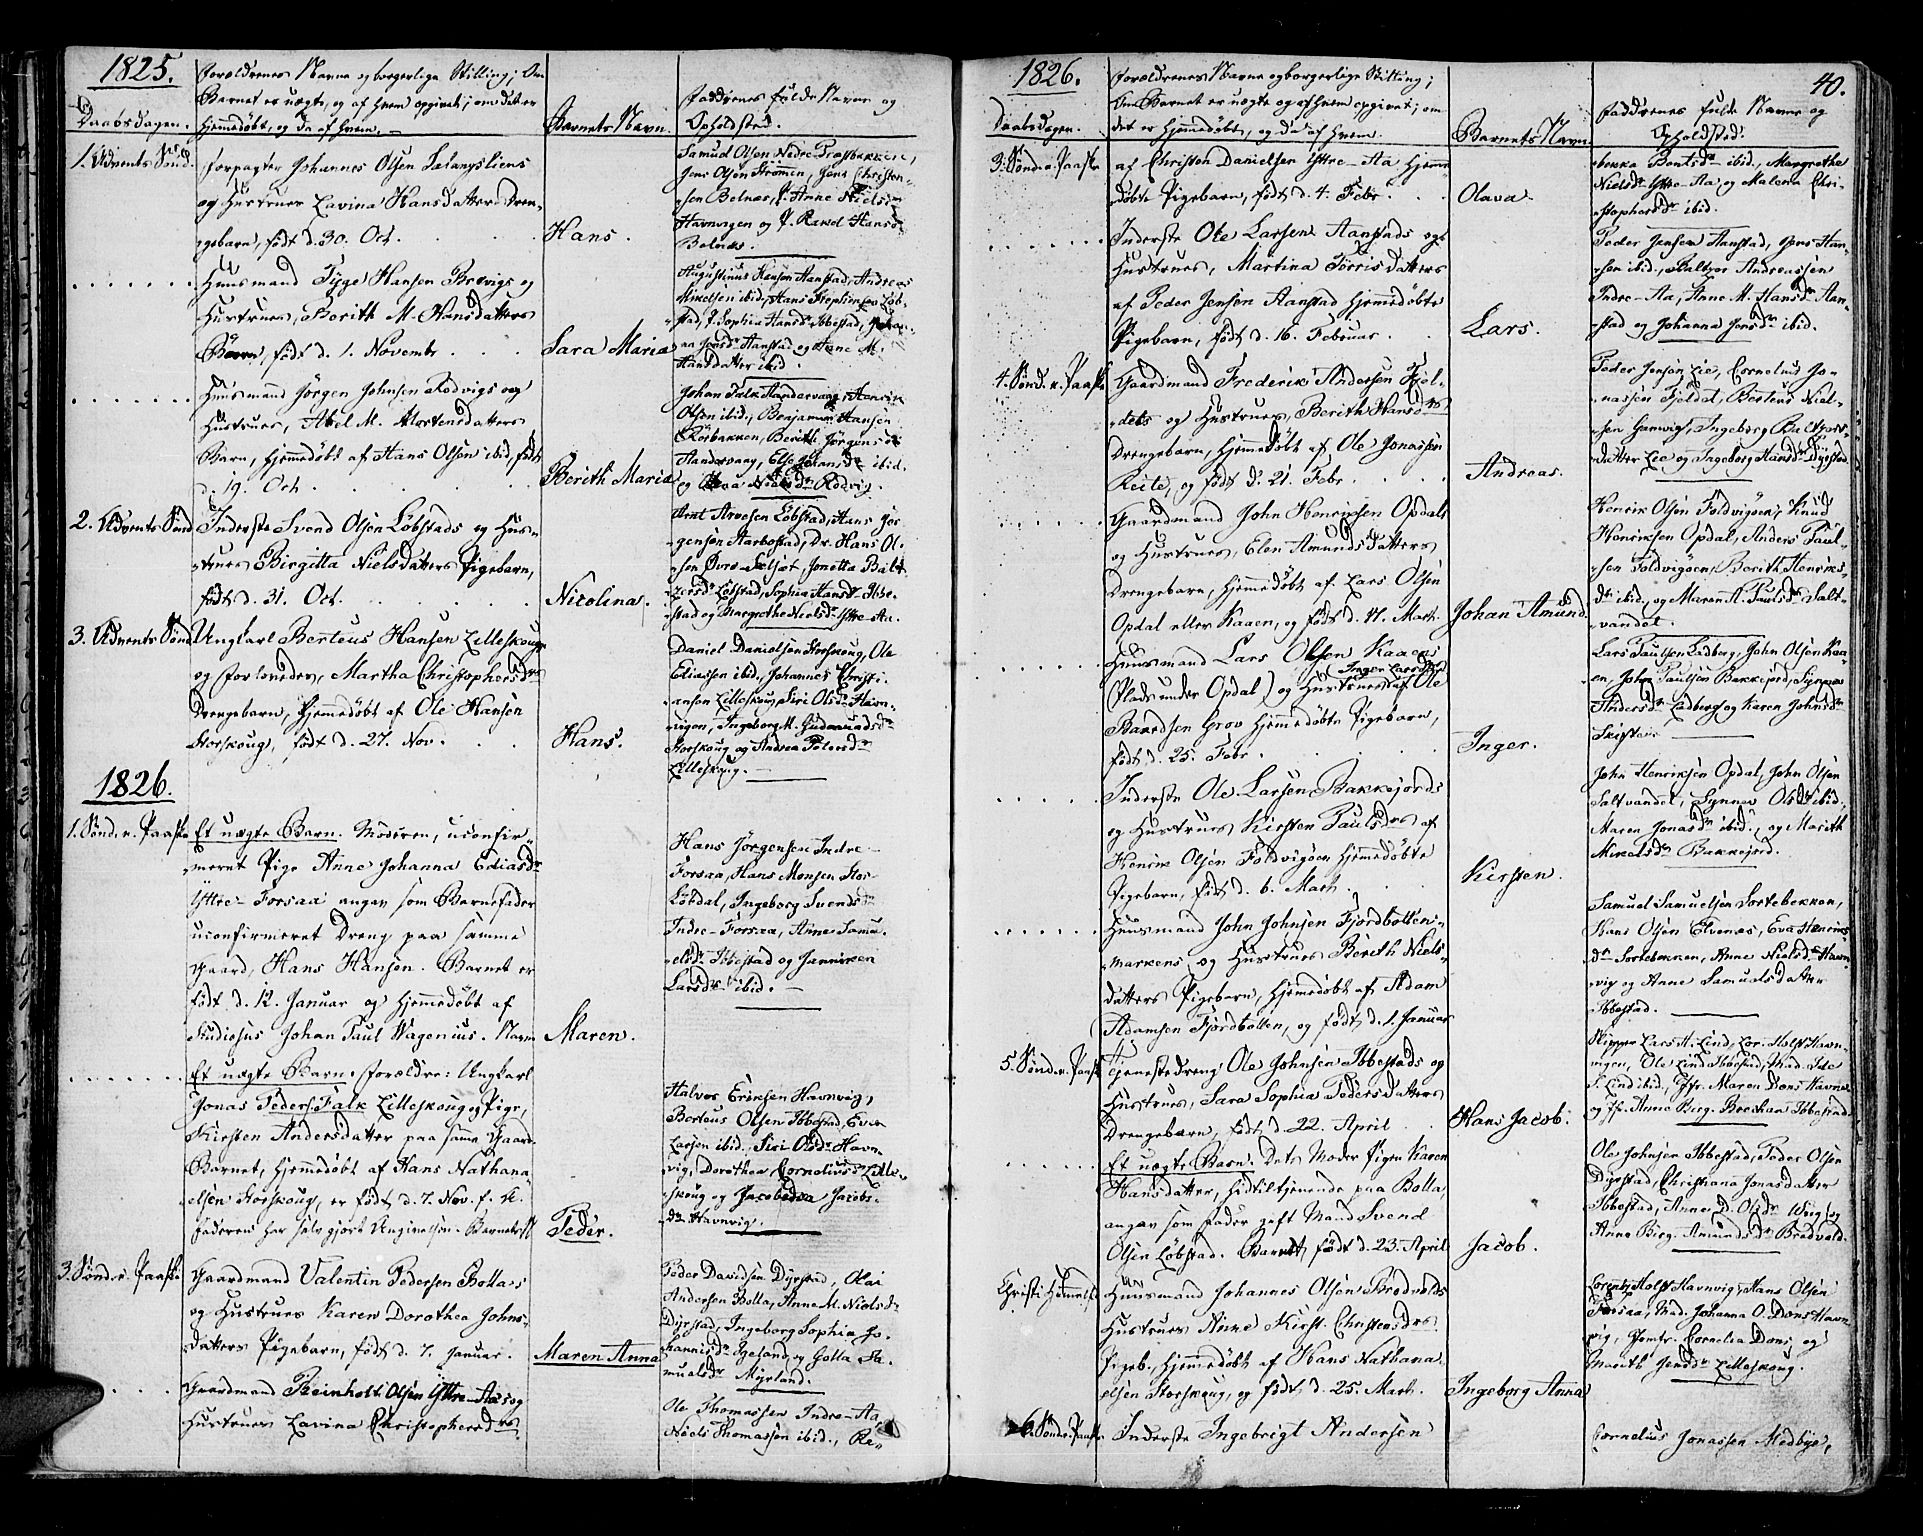 1825.
Daabsdagen.
Forældrenes Navne og borgerlige Stilling; Om
Barnet er uægte, og af hvem opgivet; om det er
hjemmedøbt, og da af hvem.
Barnets Navn.
Faddrenes fulde Navne og
Opholdsted.
1. Advents Sønd.
Forpagter Johannes Olsen
og Hustrues Lavina Hansdatters Dren-
gebarn, født d. 30. Oct.
Hans.
Jens Olsen Strømmen, Jens Christen-
sen Bolnes, P. Anne Niels
Havnvigen og P.
Huusmand Tyge Hansen Brevigs og
Hustrues, Berith M. Hansdatters
Barn, født d. 1. Novembr.
Sara Maria
Augustinus Hansen Aanstad, Andreas
Mikelsen ibid, Hans Stephensen Løb-
stad, P. Sophia Hansdr Ibbestad,
Jensdr Aanstad og Anne M.
Hansdatter ibid.
Huusmand Jørgen Johnsen Rødvigs og
Hustrues, Abel M. Mortensdatters
Barn, hjemmedøbt af Hans Olsen ibid, født
d. 19. Oct.
Berith Maria
Johan Falk Handervaag, Henrik
Olsen ibid, Benjamin Hansen
Rørbakken, Berith Jørgensdr
Handervaag, Else Johansdr ibid.
og Nielsdr Rødvig.
2. Advents Sønd
Inderste Svend Olsen Løbstads og Hus-
trues Birgitta Nielsdatters Pigebarn,
født d. 31. Oct.
Nicolina.
Arnt Arnesen Løbstad, Hans Jør-
gensen Aarbostad, Dr. Hans Ol-
sen Øvre- Jonetta Balt-
zersdr Løbstad, Sophia Hansdr Ibbe-
stad og Margrethe Nielsdr Yttre-Aa.
3. Advents Sønd
Ungkarl Berteus Hansen Lilleskoug
og Forlovedes, Martha Christophersdrs
Drengebarn, hjemmedøbt af Ole Hansen
Storskoug, født d. 27. Nov.
Hans.
Daniel Danielsen Storskoug, Ole
Eliassen ibid, Johannes Christi-
ansen Lilleskoug Siri Olsdr Havn-
vigen, Ingeborg M. Gudmundsdr
Storskoug og Andrea Petersdr
Lilleskoug.
1826.
1. Sønd. e. Paaske
Et uægte Barn. Moderen, uconfir-
meret Pige Anne Johanna Eliasdr
Yttre-Forsaa angav som Barnefader
uconfirmeret Dreng paa samme
Gaard, Hans Hansen. Barnet er
født d. 12. Januar og hjemmedøbt af
Studiosus Johan Paul Wagenius. Navn
Maren.
Hans Jørgensen Indre-
Forsaa, Hans Monsen Stor-
Løbdal, Ingeborg Svendsdr
Indre-Forsaa, Anne Samu-
elsdr Ibbestad og Janniken
Larsdr ibid.
Et uægte Barn. Forældre: Ungkarl
Jonas Peders. Falk Lilleskoug og Pige,
Kirsten Andersdatter paa samme Gaard.
Barnet, hjemmedøbt af Hans Nathana-
elsen Storskoug, er født d. 7. Nov. f. A.
Faderen har selv gjort Angivelsen. Barnets N.
Peder.
Halvor Eriksen Havnvig,
Berteus Olsen Ibbestad, Even
Larsen ibid, Siri Olsdr Havn-
vig, Dorothea Corneliusdr Lille-
skoug og Jacobedea Jacobs-
dr Havnvig.
3. Sønd. e. Paaske
Gaardmand Valentin Pedersen Bollas
og Hustrues Karen Dorothea Johns-
datters Pigebarn, født d. 7. Januar.
Maren Anna
Peder Davidsen Dyrstad, Olai
Andersen Bolla, Anne M. Nielsdr
Dyrstad, Ingeborg Sophia Jo-
hannisdr Igeland og Golla Sa-
muelsdr Myrland.
Gaardmand Reinholt Olsen Yttre-Aas og
Hustrues Lavina Christophersdrs
Ole Thomassen Indre-Aa,
Niels Thomassen ibid., Re-
1826.
40.
Daabsdagen.
Forældrenes Navne og borgerlige Stilling;
Om Barnet er uægte og af hvem opgivet; om
det er hjemmedøbt, og da af hvem.
Barnets Navn
Faddrenes fulde Navne og
Opholdsted.
3. Sønd. e. Paaske
af Christen Danielsen Yttre-Aa hjemme-
døbte Pigebarn, født d. 4. Febr.
Olava.
bekka Bentsdr ibid., Margrethe
Nielsdr Yttre-Aa og Malena Chri-
stophersdr ibid.
Inderste Ole Larsens Aanstads og
Hustrues, Martina Torrisdatters
af Peder Jensen Aanstad hjemmedøbte
Pigebarn, født d. 16. Februar.
Lars.
Peder Jensen Aanstad, Jens Han-
sen ibid., Baltzer Andreassen
Indre-Aa, Anne M. Hansdr Aan-
stad og Johanna Jensdr ibid.
4. Sønd. e. Paaske
Gaardmand Frederik Andersen Fjel-
dets og Hustrues, Berith Hansdrs
Drengebarn, hjemmedøbt af Ole Jonassen
Leite, og født d. 21. Febr.
Andreas.
Peder Jensen Lie, Cornelius Jo-
nassen Fjeldet, Berteus Niel-
sen Hamvig, Ingeborg Baltzers-
datter Lie og Ingeborg Hansdr Dyrstad
Gaardmand John Henriksen Opdals
og Hustrues, Elen Amundsdatters
Drengebarn, hjemmedøbt af Lars Olsen
Opdal eller Kaaen, og født d. 11. Mart.
Johan Amund.
Henrik Olsen Foldvigøen, Knud
Henriksen Opdal, Anders Paul-
sen Foldvigøen, Berith Henriks-
dr ibid., og Maren A. Paulsdr Salt-
vandet.
Huusmand Lars Olsen Kaaens
(Plads under Opdal) og Hustrues Inger Larsdrs af Ole
Baardsen Grov hjemmedøbte Pigebarn,
født d. 25. Febr.
Inger.
Lars Paulsen Ladberg, John Olsen Kaa-
en, John Paulsen Bakkejord, Synnev
Andersdr Ladberg og Karen Johnsdr
Inderste Ole Larsen Bakkejords
og Hustrues Kirsten Paulsdrs af
Henrik Olsen Foldvigøen hjemmedøbte
Pigebarn, født d. 6. Mart.
Kirsten.
John Henriksen Opdal, John Olsen
Saltvandet, Synnev Olsdr ibid.,
Maren Jonasdr ibid., og Marith
Mikelsdr Bakkejord.
Huusmand John Johnsen Fjordbotten-
markens og Hustrues Berith Niels-
datters Pigebarn, hjemmedøbt af Adam
Adamsen Fjordbotten, og født d. 1. Januar
Samuel Samuelsen Sortebekken,
Hans Olsen Elvenæs, Eva Henriks-
dr Sortebekken, Anne Nielsdr Havn-
vig og Anne Samuelsdatter
Ibbestad.
5. Sønd. e. Paaske
Tjenestedreng Ole Johnsen Ibbestads og
Hustrues, Sara Sophia Pedersdatters
Drengebarn, født d. 22. April
Hans Jacob.
Skipper Lars H. Lind, Lor. Holst Havn-
vigen, Ole Lind Ibbestad, Mad. Ide
S. Lind ibid., Jfr. Maren Dons Havnv.
og Jfr. Anne Birg. Brechan Ibbestad.
Et uægte Barn. Dets Moder Pigen Karen
Hansdatter, hidtiltjenende paa Bolla,
angav som Fader gift Mand Svend
Olsen Løbstad. Barnet født d. 23. April
Jacob.
Ole Johnsen Ibbestad, Peder Olsen
Dyrstad, Christiana Jonasdatter
Ibbestad, Anne D. Olsdr Wiig og
Anne Birg. Amundsdr Bredvold.
Christi Himmelf.
Huusmand Johannes Olsen Bredvolds
Hustrues Anne Kirst. Christensdrs
Pigeb. hjemmedøbt af Hans Nathana-
elsen Storskoug, og født d. 25. Mart.
Ingeborg Anna
Lorentz Holst Havnvig, Hans Olsen
Forsaa, Mad. Johanna O. Dons Havn-
vig, Jomfr. Cornelia Dons og
Marith Jensdr Lilleskoug.
6. Sønd. e. Paaske
Inderste Ingebrigt Andersen
Cornelius Jonassen Medbye,